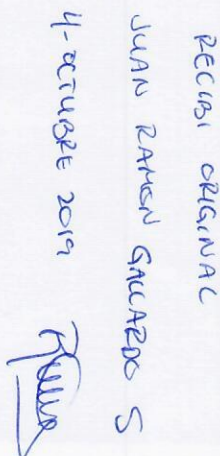 RECIBI ORIGINAL
JUAN RAMON GALLARDO S
4-OCTUBRE 2019